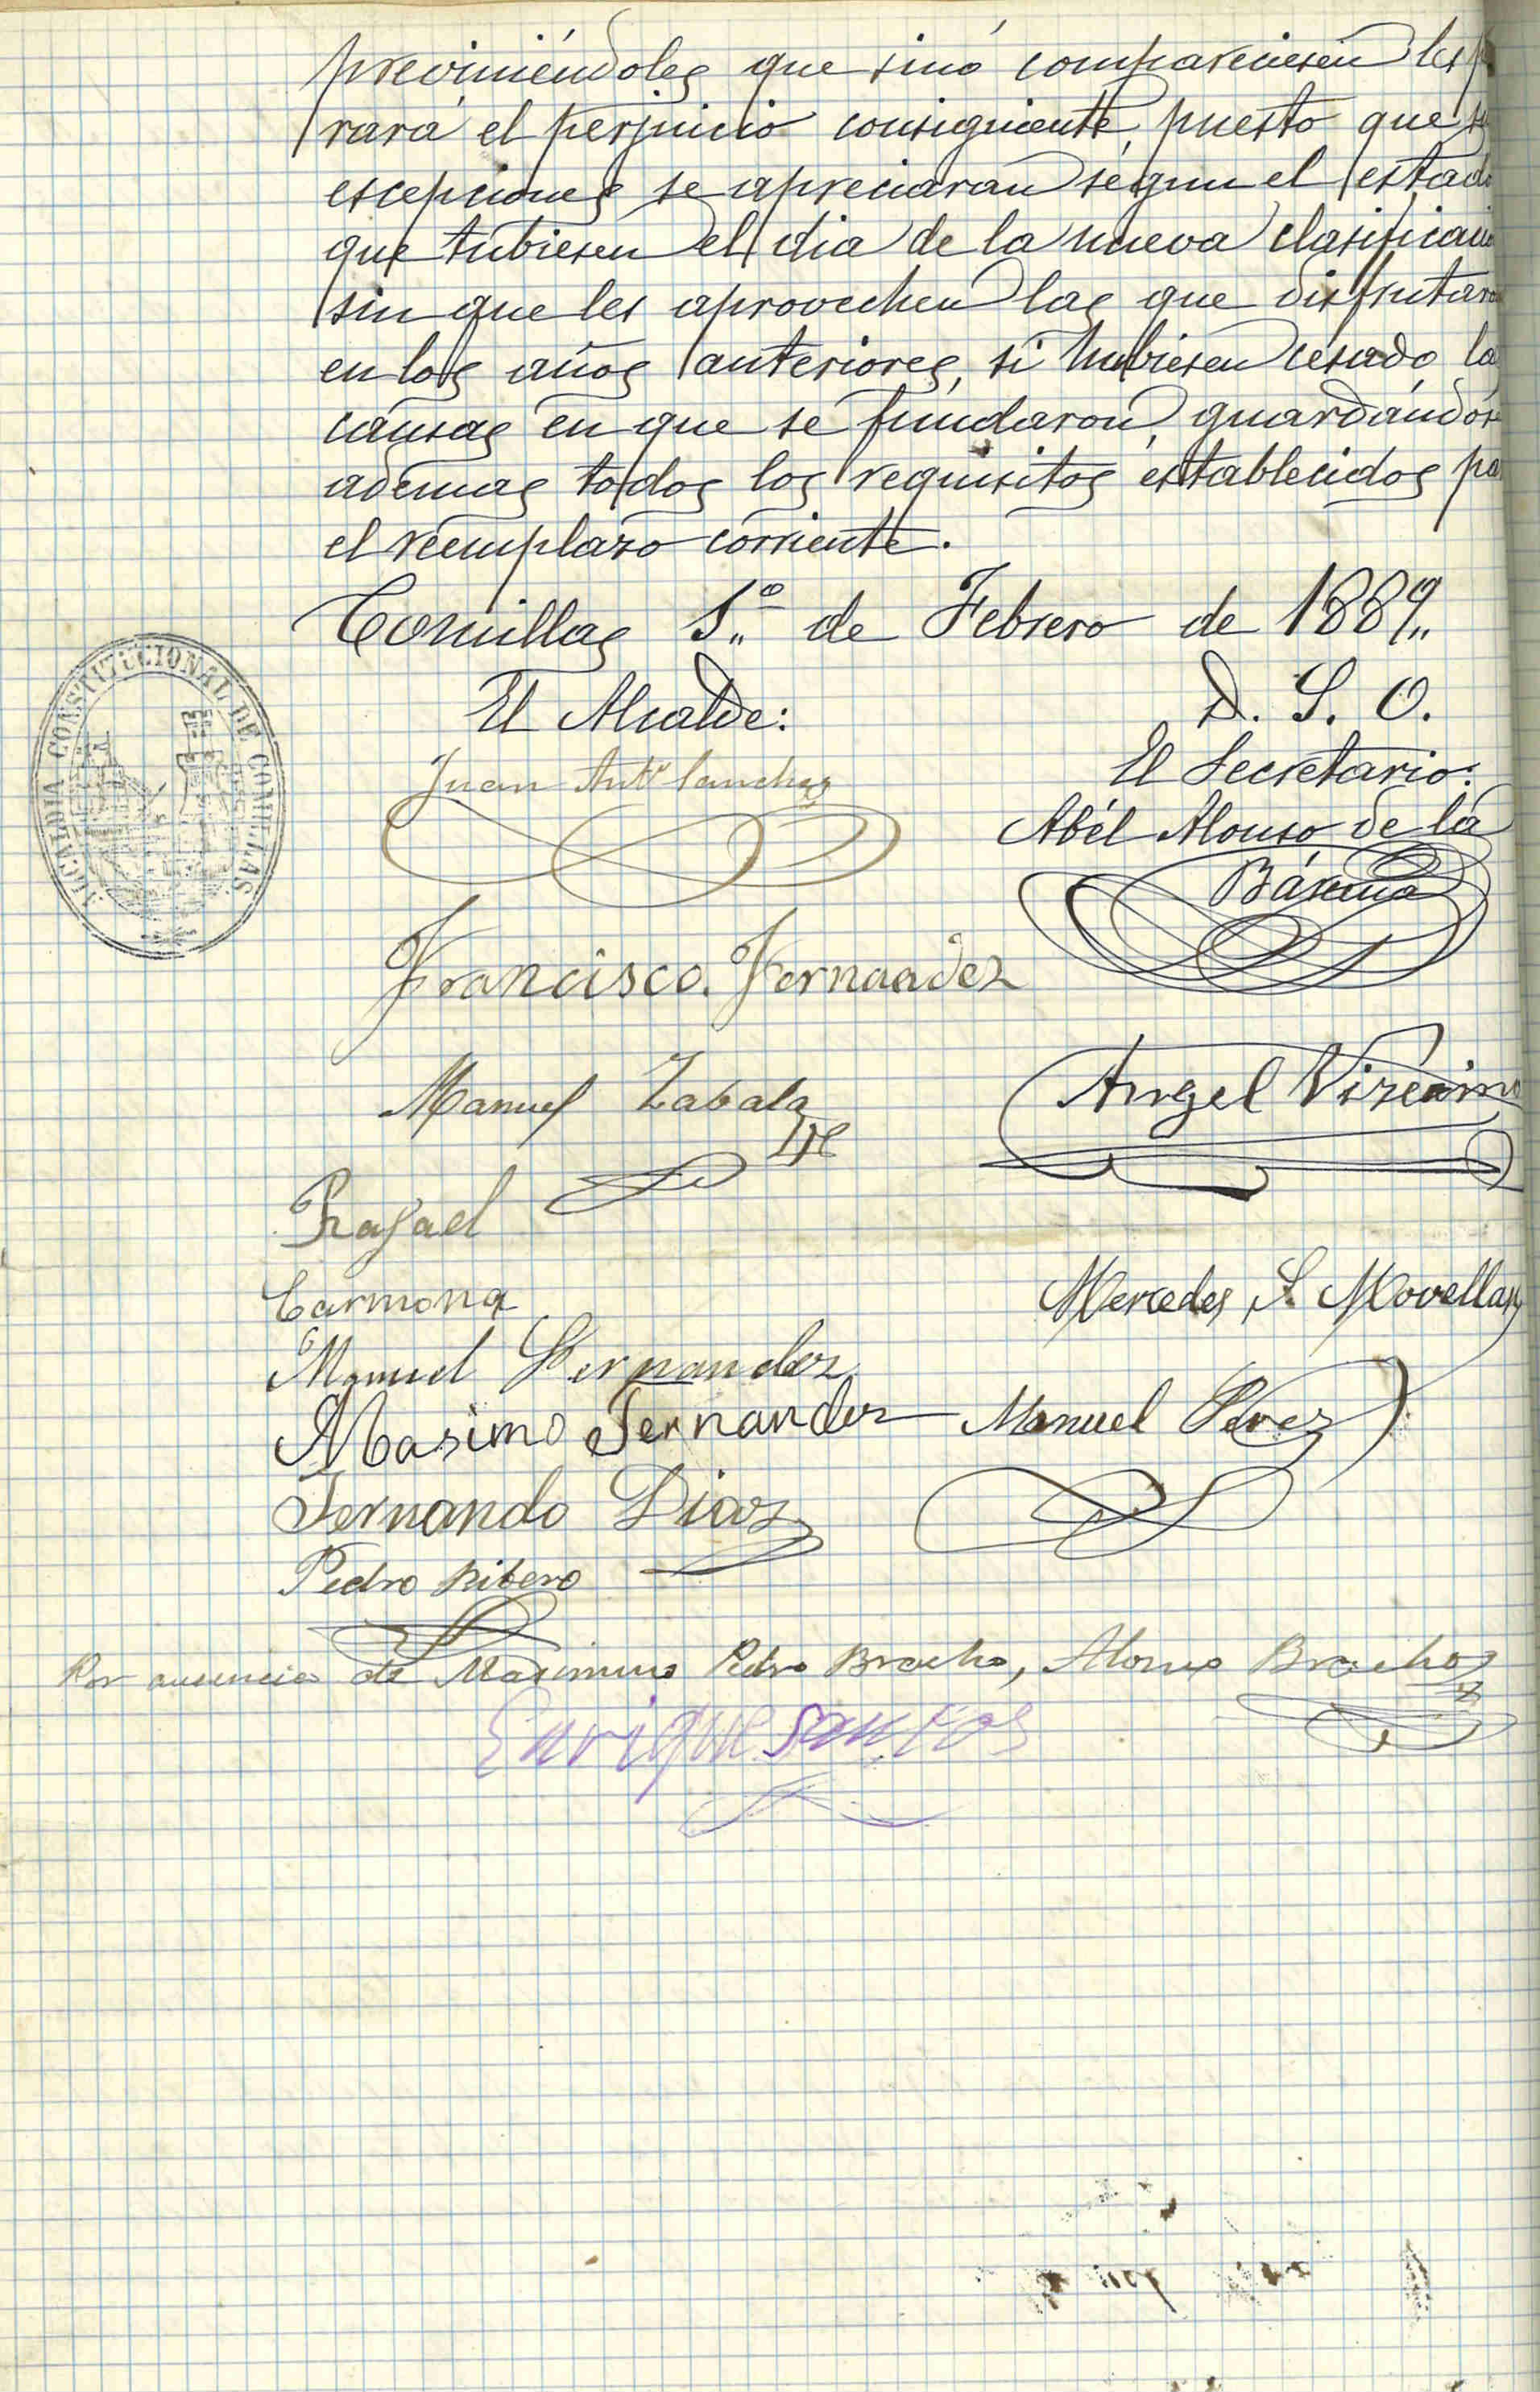 previniéndoles que sinó compareciesen les pa
rará el perjuicio consiguiente, puesto que su
escepciones se apreciaran segun el estado
que tubiesen el dia de la nueva clasificacio
sin que les aprovechen las que disfrutaro
en los años anteriores, si hubiesen cesado la
causas en que se fundaron, guardándose
ademas todos los requisitos establecidos pa
el reemplazo corriente.
Comillas 1.º de Febrero de 1889.
El Alcalde: D. S. O.
Juan Antº Sanchez El Secretario:
Abél Alonso de la
Bárcena
ALCALDIA CONSTITUCIONAL DE COMILLAS
Francisco. Fernandez
Manuel Zabala Angel Vizcaino
Rafael
Carmona Mercedes S. Movellan
Manuel Fernandez
Masimo Fernandez Manuel Perez
Fernando Diaz
Pedro Ribero
Por ausencia de Maximino Pedro Bracho, Alonso Bracho
Enrique Santos